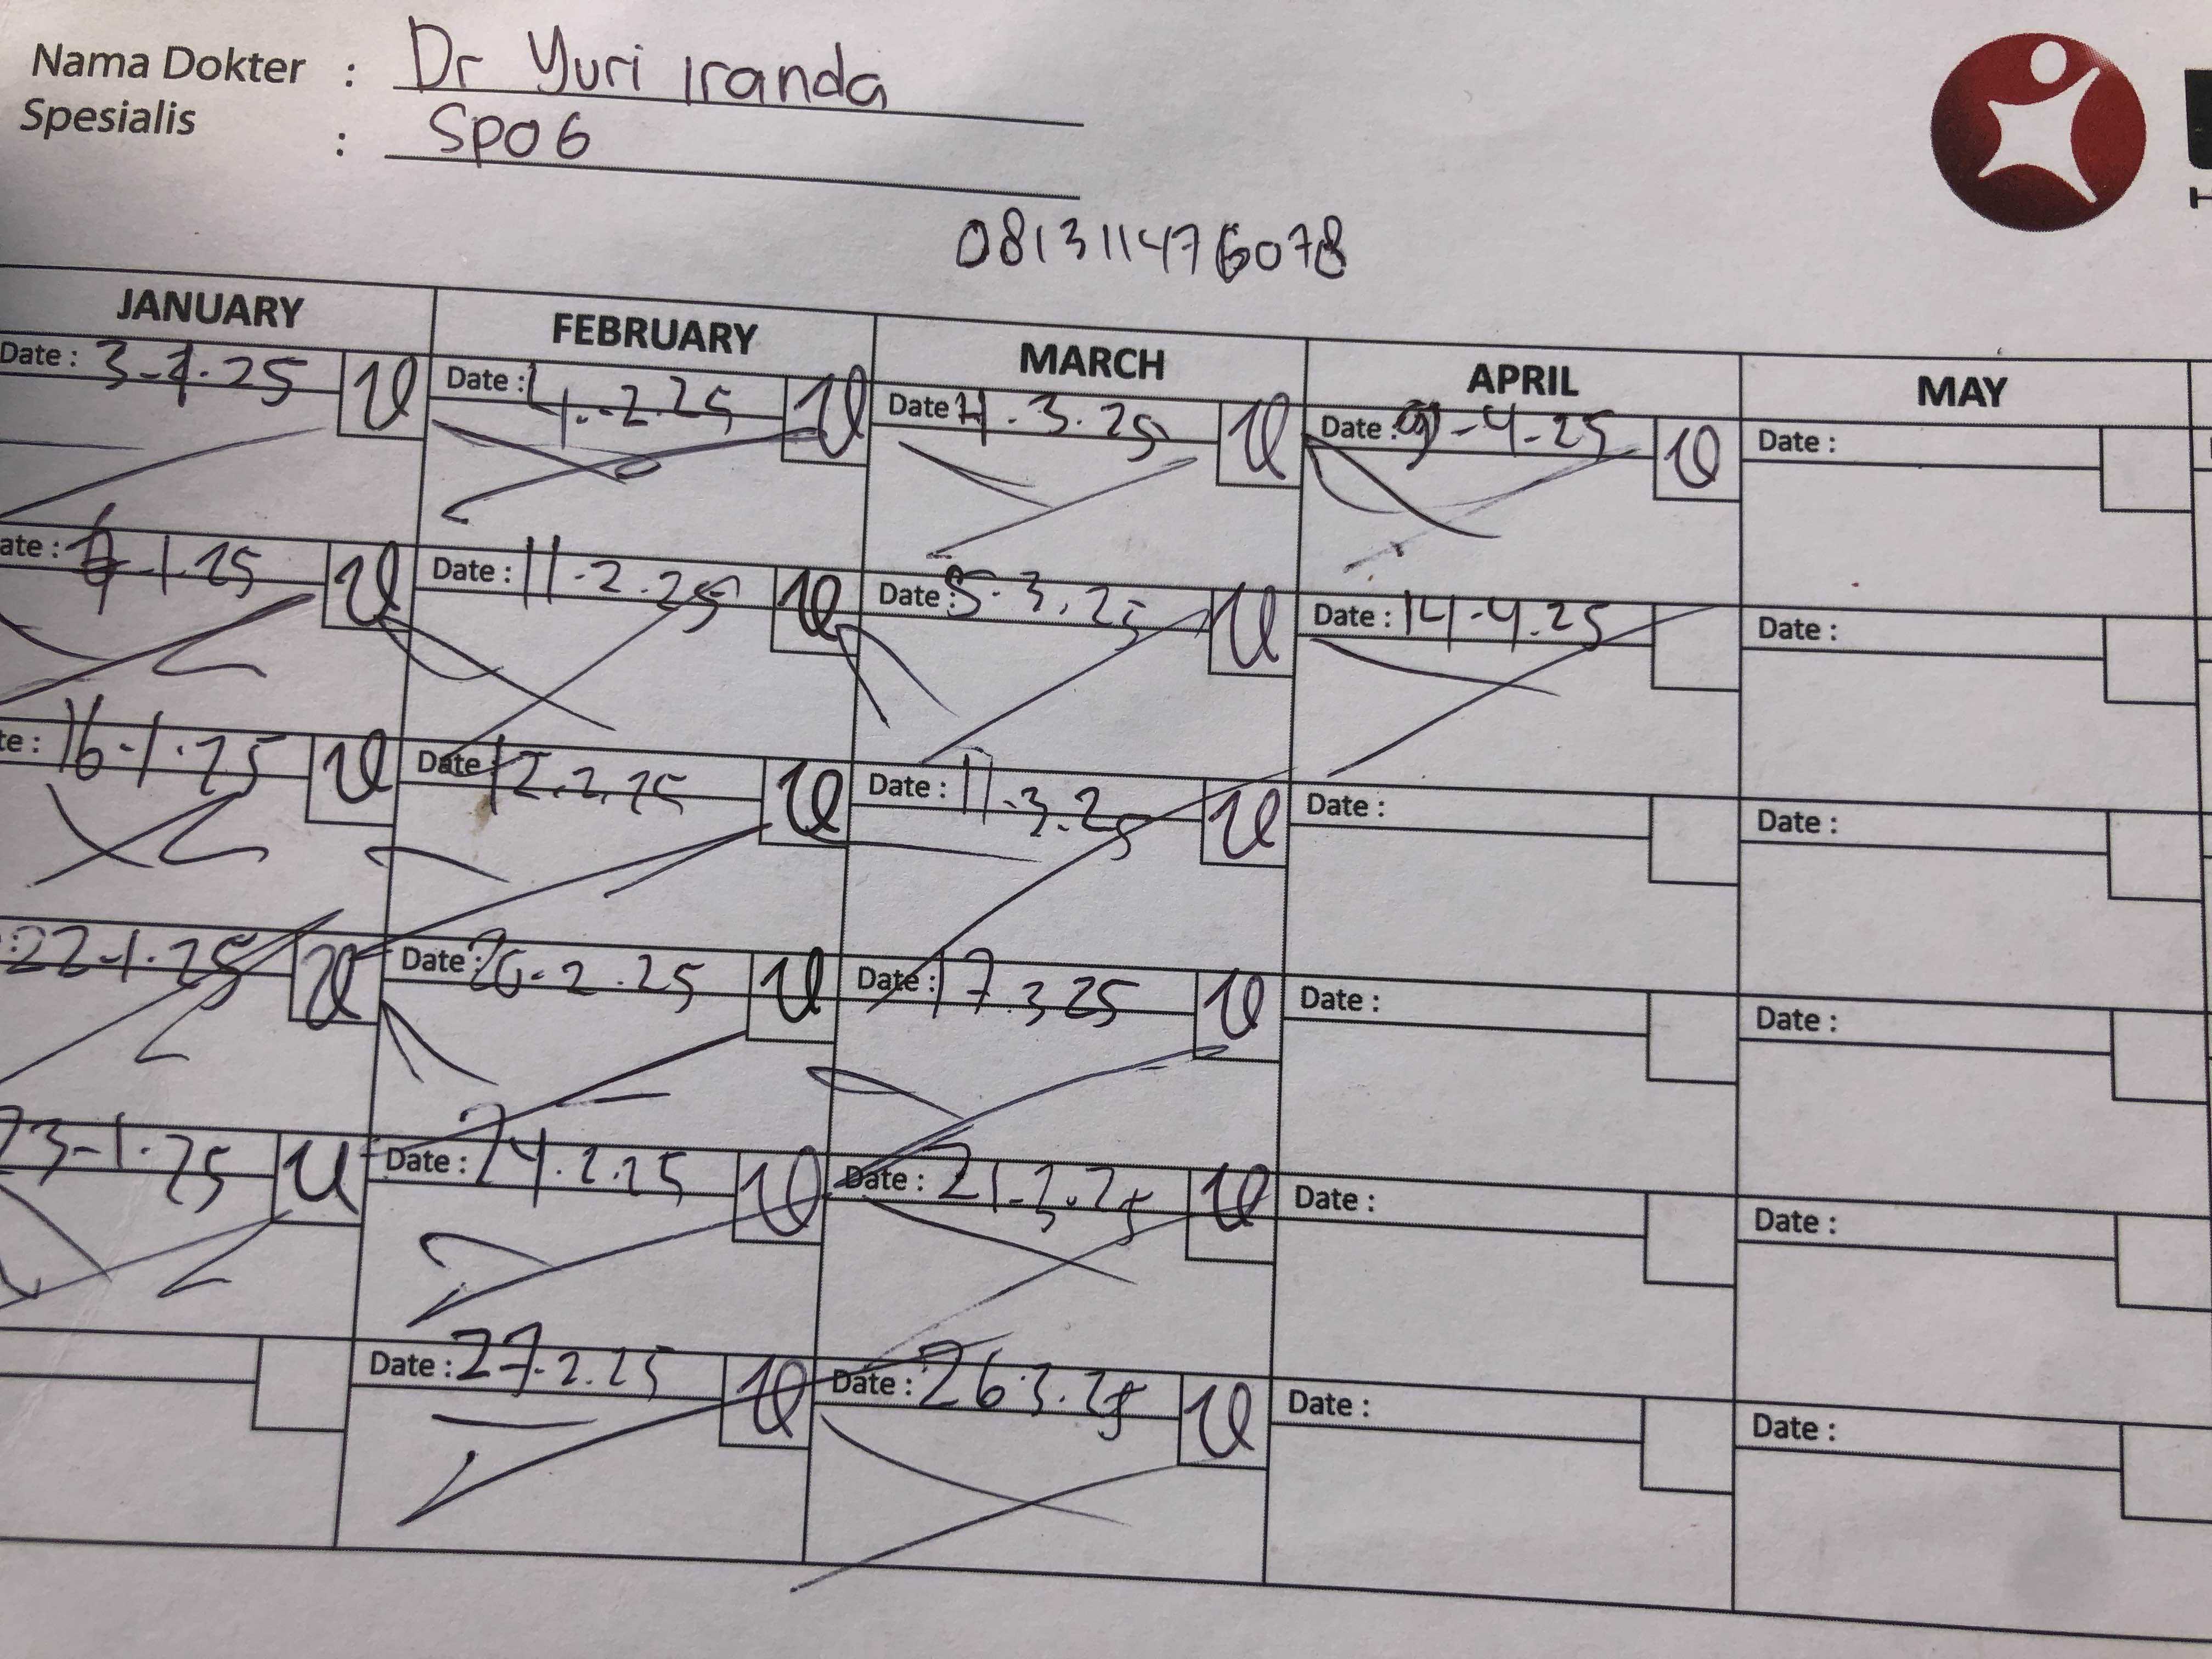 Nama Dokter : Dr Yuri Iranda
Spesialis : SPOG
081311476078
JANUARY FEBRUARY MARCH APRIL MAY
Date : 3-1-25 Date : 4.-2.25 Date 4.3.25 Date : 9-4-25 Date :
ate : -1.25 Date : 11-2.25 Date : 5.3.25 Date : 14-4.25 Date :
te : 16-1.25 Date 12.2.25 Date : 11.3.25 Date : Date :
: 22-1.25 Date : 20-2.25 Date : 17.3 25 Date : Date :
23-1.25 Date : 24.2.25 Date : 21.3.25 Date : Date :
Date : 27.2.25 Date : 26 3.25 Date : Date :